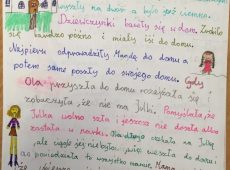 wyszły na dwór a było już ciemno.
Dziewczynki bawiły się w domu. Zrobiło
się bardzo późno i miały iść do domu.
Najpierw odprowadziły Magdę do domu a
potem same poszły do swojego domu. Gdy
Ola przyszła do domu rozejrzała się i
zobaczyła, że nie ma Julki. Pomyślała, że
Julka wolno szła i jeszcze nie doszła albo
została w parku. Ola długo czekała na Julkę
ale ciągle jej nie było, więc weszła do domu i
opowiedziała to wszystko mamie. Mama